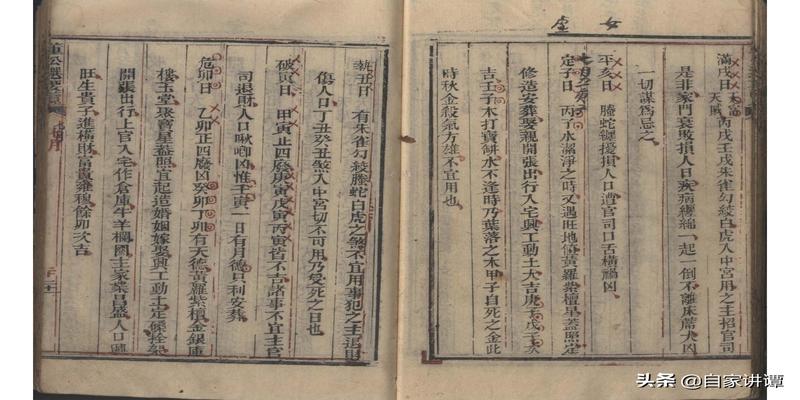 女
滿戌日 天富 天賊 丙戌壬戌朱雀勾絞白虎入中宮用之主招官司
是非家門衰敗損人日疾病纏綿一起一倒不離床蓆大凶
一切謀爲忌之
平亥日 螣蛇纏擾損人口遭官司口舌橫禍凶
定子日 丙子水潔淨之時又遇旺地黃羅紫檀星蓋照定
修造安葬娶親開張出行入宅興工動土大吉庚子戊子次
吉壬子木打寶缾水不逢時乃葉落之木甲子自死之金此
時秋金殺氣方雄不宜用也
執丑日 有朱雀勾絞螣蛇白虎之煞不宜用事犯之主退財
傷人口丁丑癸丑煞入中宮切不可用乃受死之日也
破寅日 甲寅正四廢庚寅戊寅丙寅皆不吉諸事不宜主官
司退財人口啾唧凶惟壬寅一日有月德日利安葬
危卯日 乙卯正四廢凶癸卯丁卯有天德黃羅紫檀金銀庫
樓玉堂聚寶星蓋照宜起造婚姻嫁娶興工動土定磉拴架
開張出行上官入宅作倉庫牛羊欄圈主家業昌盛人口興
旺生貴子進橫財富貴雍穆餘卯次吉
头条 @自家讲谭